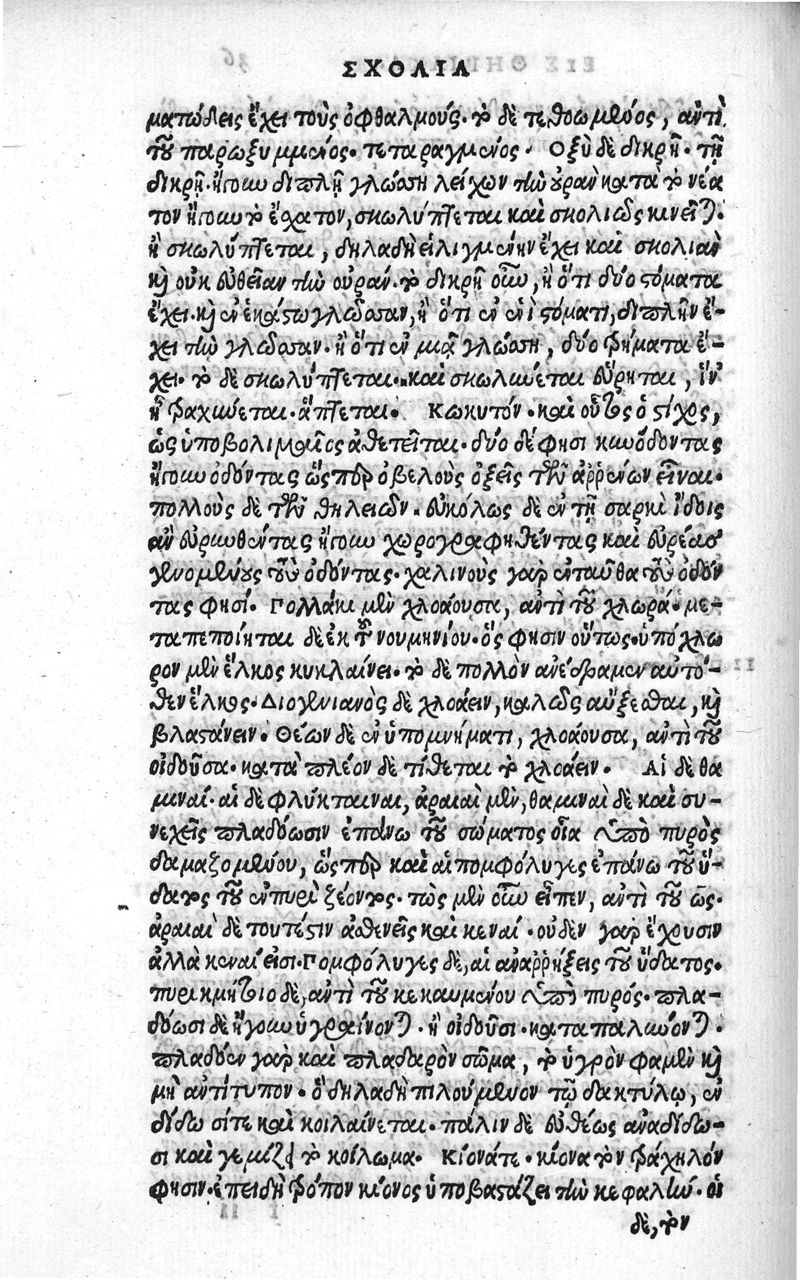 ΣΧΟΛΙΑ
ματώδεις ἔχει τοὺς ὀφθαλμούς· τὸ δὲ τεθοωμένος, ἀντὶ
τοῦ παρωξυμμένος· τεταραγμένος· Οξὺ δὲ δικρῆ· τῇ
δικρῇ· ἤγουν διπλῇ γλώσσῃ λείχων τὴν οὐρὰν κατὰ τὸ νέα
τον ἤγουν τὸ ἔσχατον, σκωλύπτεται καὶ σκολιῶς κινεῖται·
ἢ σκωλύπτεται, δηλαδὴ εἱλιγμένην ἔχει καὶ σκολιὰν
καὶ οὐκ εὐθεῖαν τὴν οὐράν· τὸ δικρῆ οὖν, ἢ ὅτι δύο στόματα
ἔχει· καὶ ἐν ἑκάστῳ γλῶσσαν, ἢ ὅτι ἐν ἑνὶ στόματι, διπλῆν ἔ-
χει τὴν γλῶσσαν· ἢ ὅτι ἐν μιᾷ γλώσσῃ, δύο τμήματα ἔ-
χει· τὸ δὲ σκωλύπτεται· καὶ σκωλύνεται εὕρηται, ἵν'
ᾖ τραχύνεται· ἅπτεται· Κωκυτόν· καὶ οὗτος ὁ στίχος,
ὡς ὑποβολιμαῖος ἀθετεῖται· δύο δέ φησι κυνόδοντας
ἤγουν ὀδόντας ὥσπερ ὀβελοὺς ὀξεῖς τῶν ἀῤῥένων εἶναι·
πολλοὺς δὲ τῶν θηλειῶν· εὐκόλως δὲ ἐν τῇ σαρκὶ ἴδοις
ἂν εὑρυνθέντας ἤγουν χωρογραφηθέντας καὶ εὑρέας
γενομένους τοὺς ὀδόντας· χαλινοὺς γὰρ ἐνταῦθα τοὺς ὀδόν
τας φησί· Πολλάκι μὲν χλοάουσα, ἀντὶ τοῦ χλωρά· με-
ταπεποίηται δὲ ἐκ τοῦ νουμηνίου· ὅς φησιν οὕτως· ὑπόχλω
ρον μὲν ἕλκος κυκλαίνει· τὸ δὲ πολλὸν ἀνέδραμεν αὐτό-
θεν ἕλκος· Διογενιανὸς δὲ χλοάειν, καλῶς αὔξεσθαι, καὶ
βλαστάνειν· Θέων δὲ ἐν ὑπομνήματι, χλοάουσα, ἀντὶ τοῦ
οἰδοῦσα· κατὰ πλέον δὲ τίθεται τὸ χλοάειν· Αἱ δὲ θα
μιναί· αἱ δὲ φλύκταιναι, ἀραιαὶ μὲν, θαμιναὶ δὲ καὶ συ-
νεχεῖς πλαδόωσιν ἐπάνω τοῦ σώματος οἷα ὑπὸ πυρὸς
δαμαζομένου, ὥσπερ καὶ αἱ πομφόλυγες ἐπάνω τοῦ ὕ-
δατος τοῦ ἐν πυρὶ ζέοντος· τὼς μὲν οὖν εἶπεν, ἀντὶ τοῦ ὥς·
ἀραιαὶ δὲ τουτέστιν ἀσθενεῖς καὶ κεναί· οὐδὲν γὰρ ἔχουσιν
ἀλλὰ κεναί εἰσι· Πομφόλυγες δὲ, αἱ ἀναῤῥήξεις τοῦ ὕδατος·
πυρικμήτοιο δὲ, ἀντὶ τοῦ κεκαυμένου ὑπὸ πυρός· πλα-
δόωσι δὲ ἤγουν ὑγραίνονται· ἢ οἰδοῦσι· καταπαλύνονται·
πλαδόεν γὰρ καὶ πλαδαρὸν σῶμα, τὸ ὑγρὸν φαμὲν καὶ
μὴ ἀντίτυπον· ὃ δηλαδὴ πιλούμενον τῷ δακτύλῳ, ἐν
δίδωσί τε καὶ κοιλαίνεται· πάλιν δὲ εὐθέως ἀναδίδω-
σι καὶ γεμίζει τὸ κοίλωμα· Κίονά τε· κίονα τὸν τράχηλόν
φησιν· ἐπειδὴ τρόπον κίονος ὑποβαστάζει τὴν κεφαλήν· οἱ
δὲ, τὸν